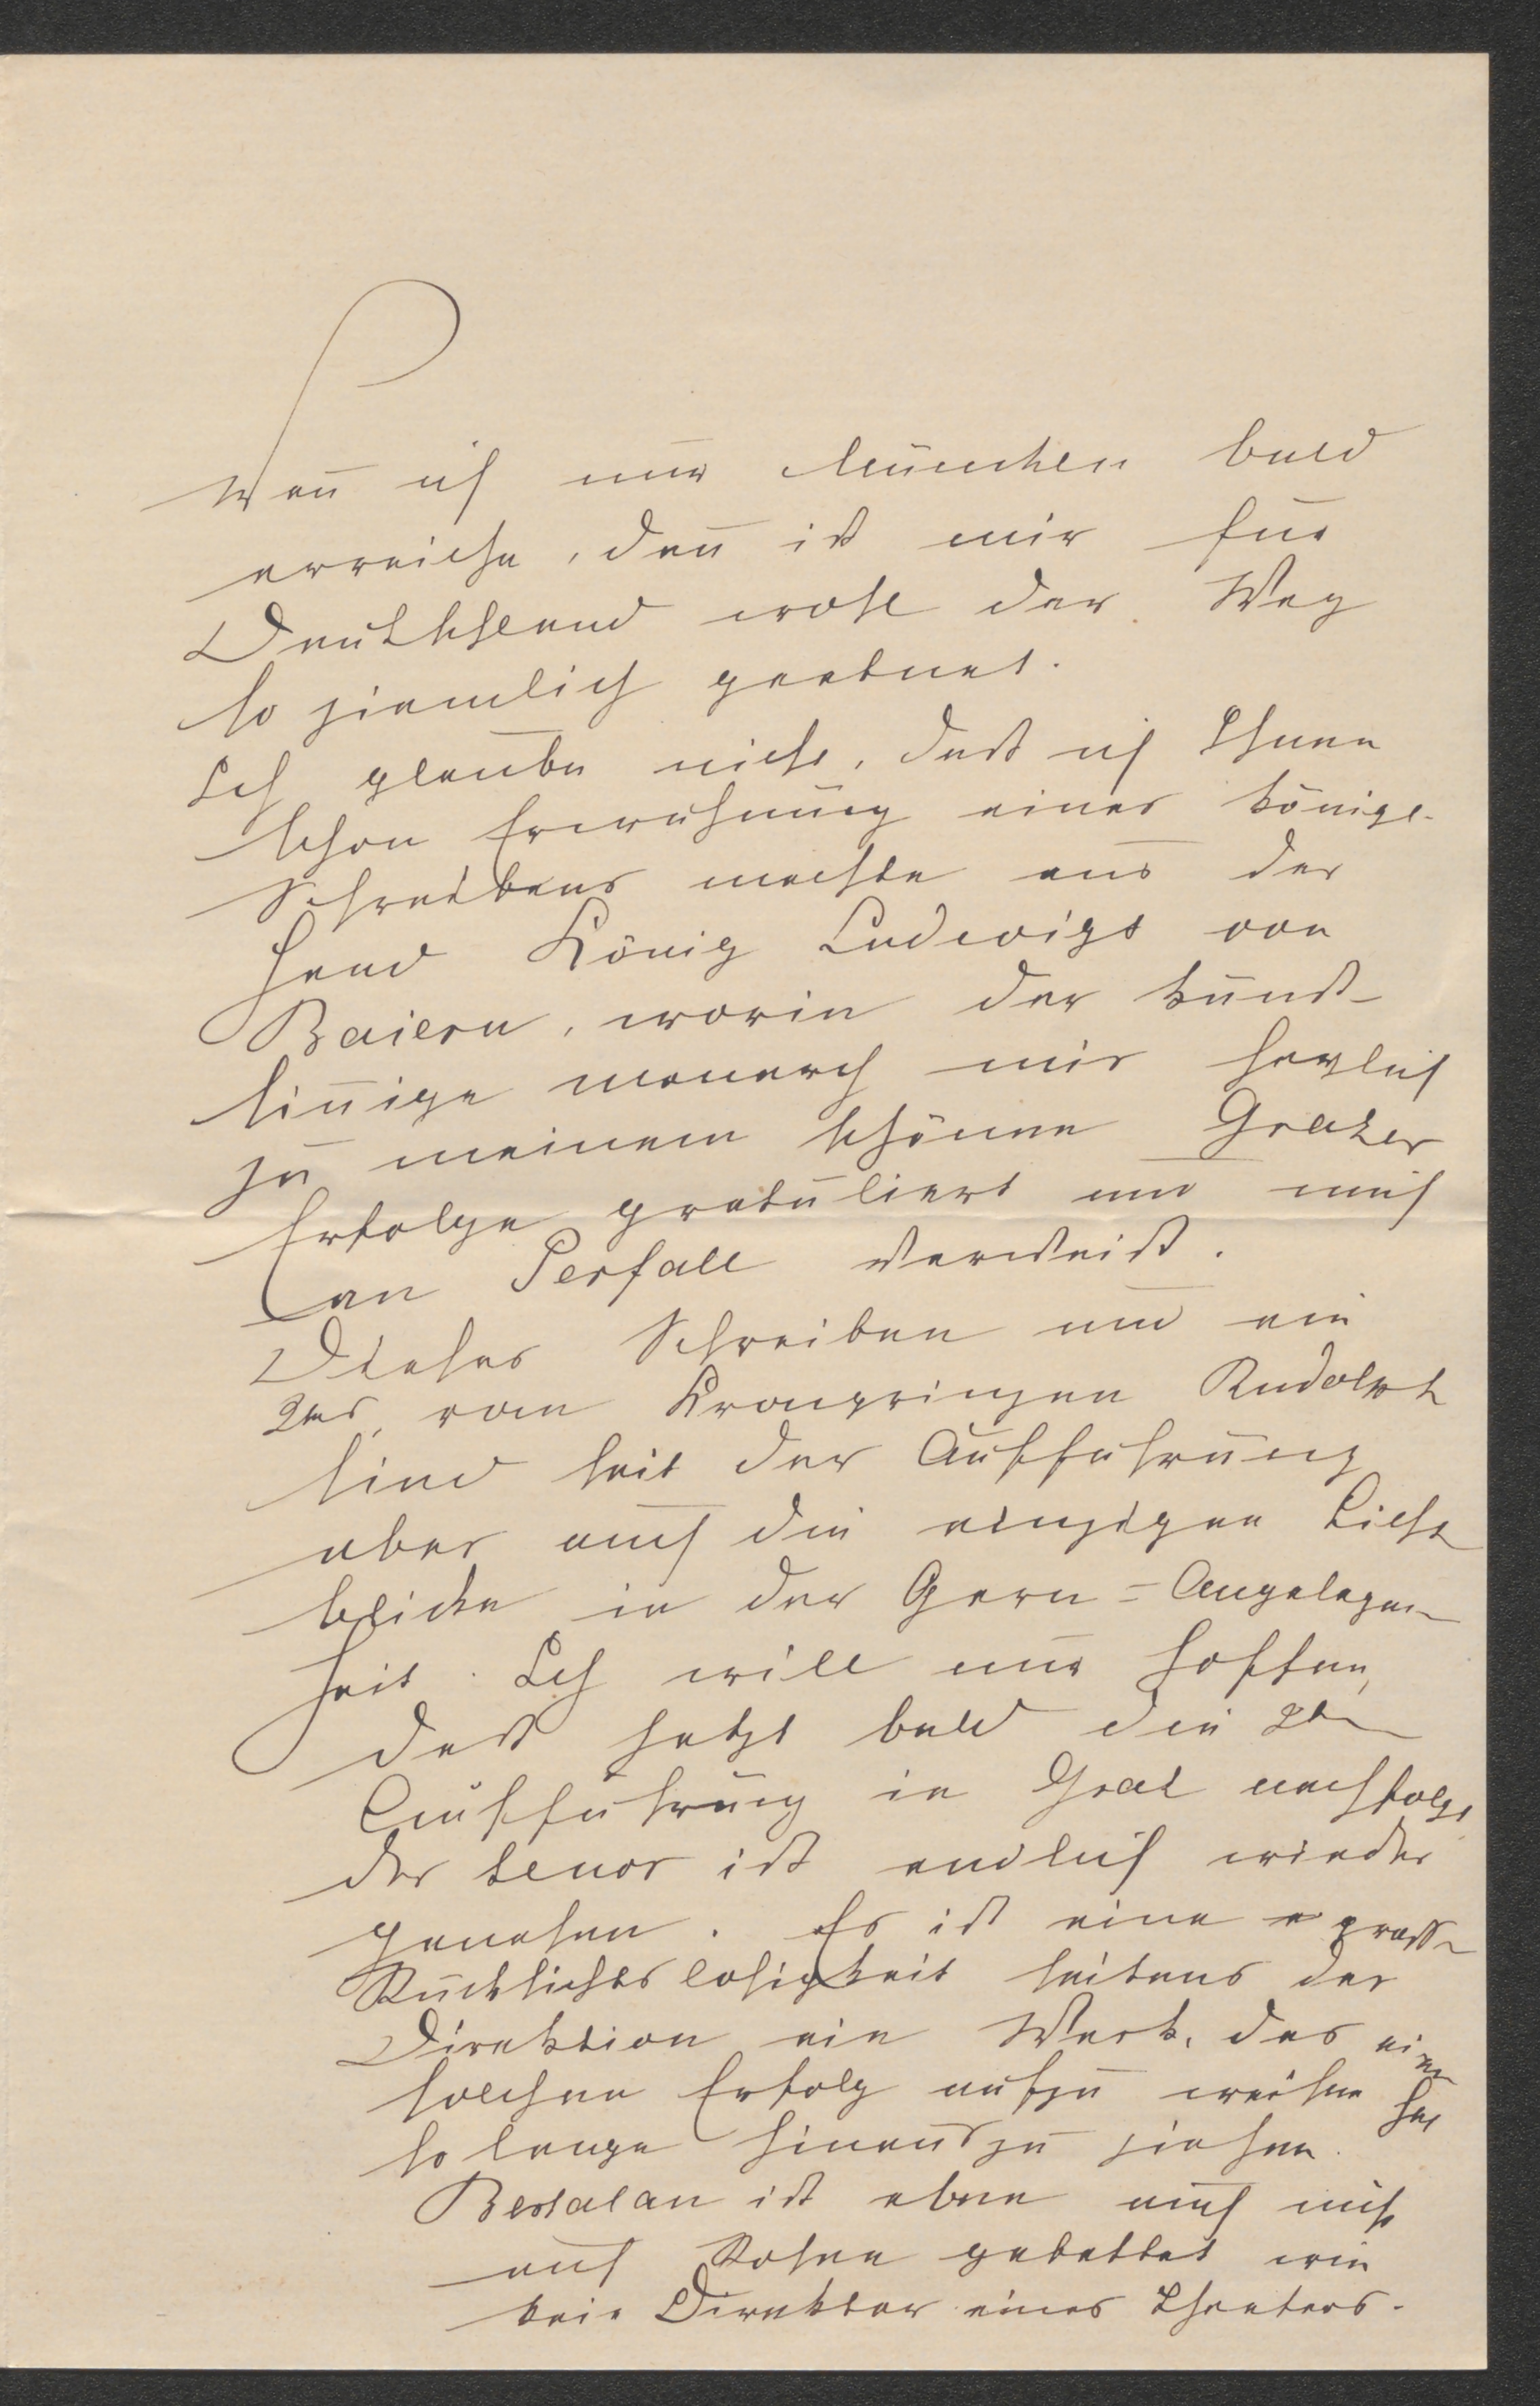 Wenn ich nur München bald
erreiche, dann ist mir für
Deutschland wohl der Weg
so ziemlich geebnet.
Ich glaube nicht, dass ich Ihnen
schon Erwähnung eines königl.
Schreibens machte aus der
Hand König Ludwigs von
Baiern, worin der kunst-
sinnige Monarch mir herzlich
zu meinem schönen Grazer
Erfolge gratuliert und mich
an Perfall verweist.
Dieses Schreiben und ein
2tes vom Kronprinzen Rudolph
sind seit der Aufführung
aber auch die einzigen Licht
blicke in der Garn=Angelegen
heit. Ich will nur hoffen,
dass jetzt bald die 2te
Aufführung in Graz nachfolgt
der Tenor ist endlich wieder
genesen. Es ist eine grosse
Rücksichtslosigkeit seitens der
Direktion ein Werk, das einen
solchen Erfolg aufzu weisen hat
so lange hinauszu ziehen.
Bertalan ist eben auch nicht
auf Rosen gebettet wie
kein Direktor eines Theaters.